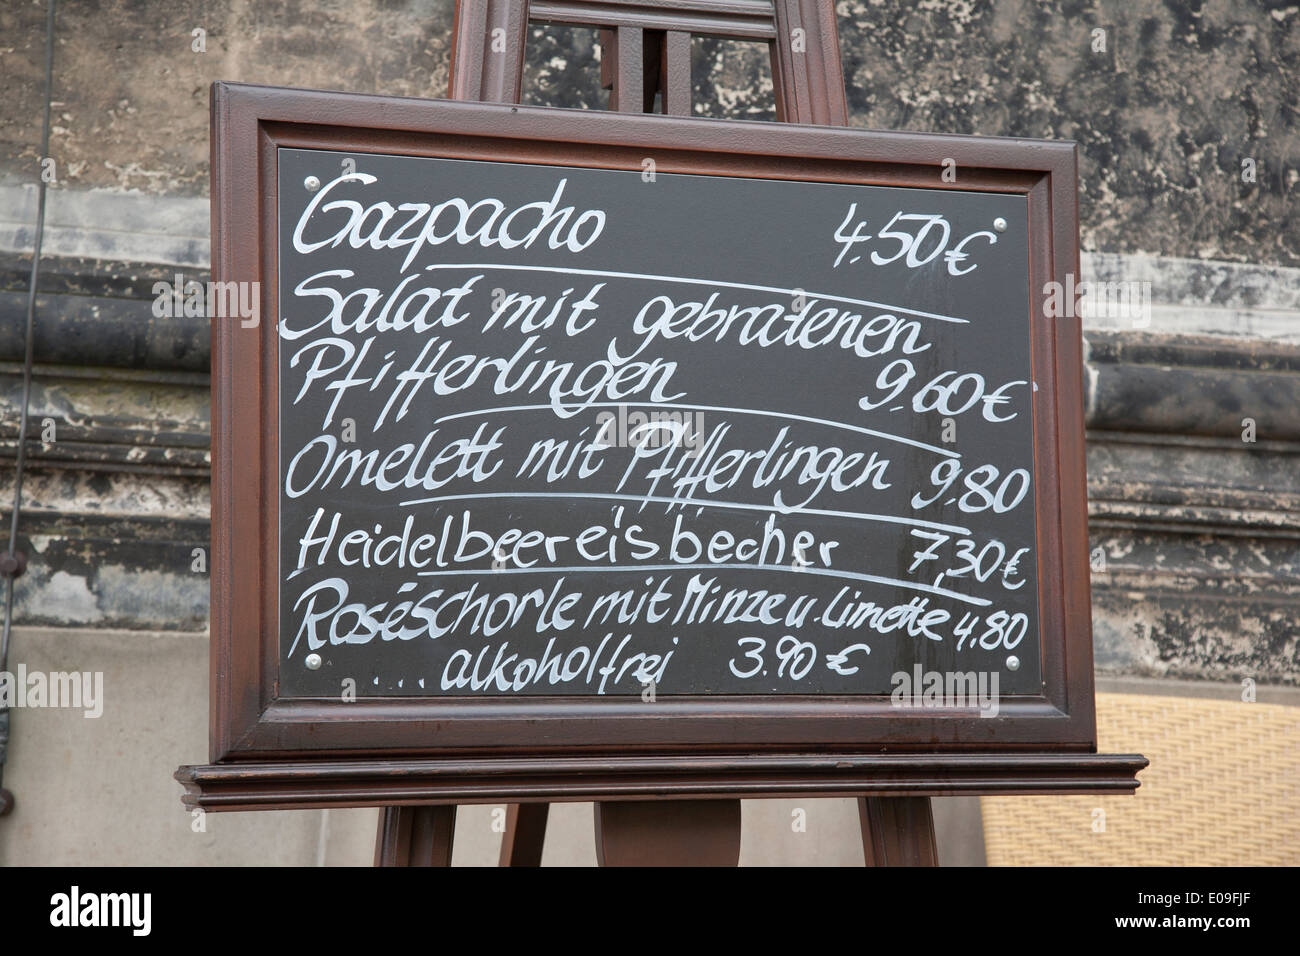 Gazpacho 4.50€
Salat mit gebratenen
Pfifferlingen 9.60€
Omelett mit Pfifferlingen 9.80
Heidelbeereisbecher 7,30€
Roséschorle mit Minze u. Limette 4.80
... alkoholfrei 3.90 €
a alamy stock photo
alamy
www.alamy.com
E09FJF